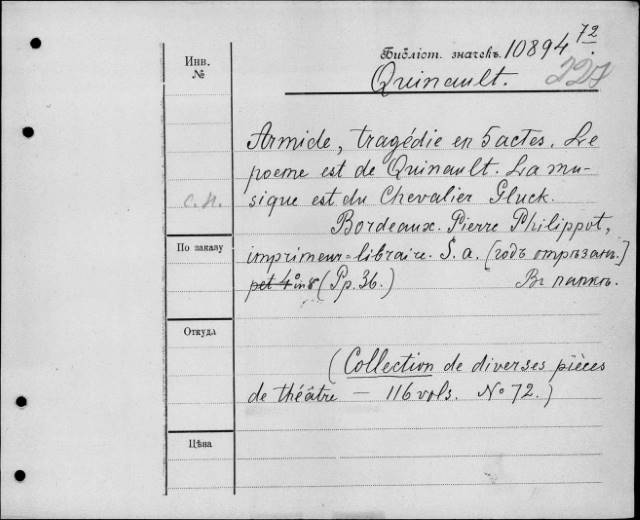 72
Библіот. значекъ. 10894
Инв.
№
Quinault.
227
Armide, tragédie en 5 actes. Le
poeme est de Quinault. La mu-
sique est du Chevalier Gluck.
с.н.
Bordeaux. Pierre Philippot,
По заказу
imprimeur=libraire. S. a. [годъ отрѣзанъ.]
pet 4° in 8 (Pp. 36.) Въ папкѣ.
Откуда
(Collection de diverses pièces
de théâtre — 116 vols. No 72.)
Цѣна